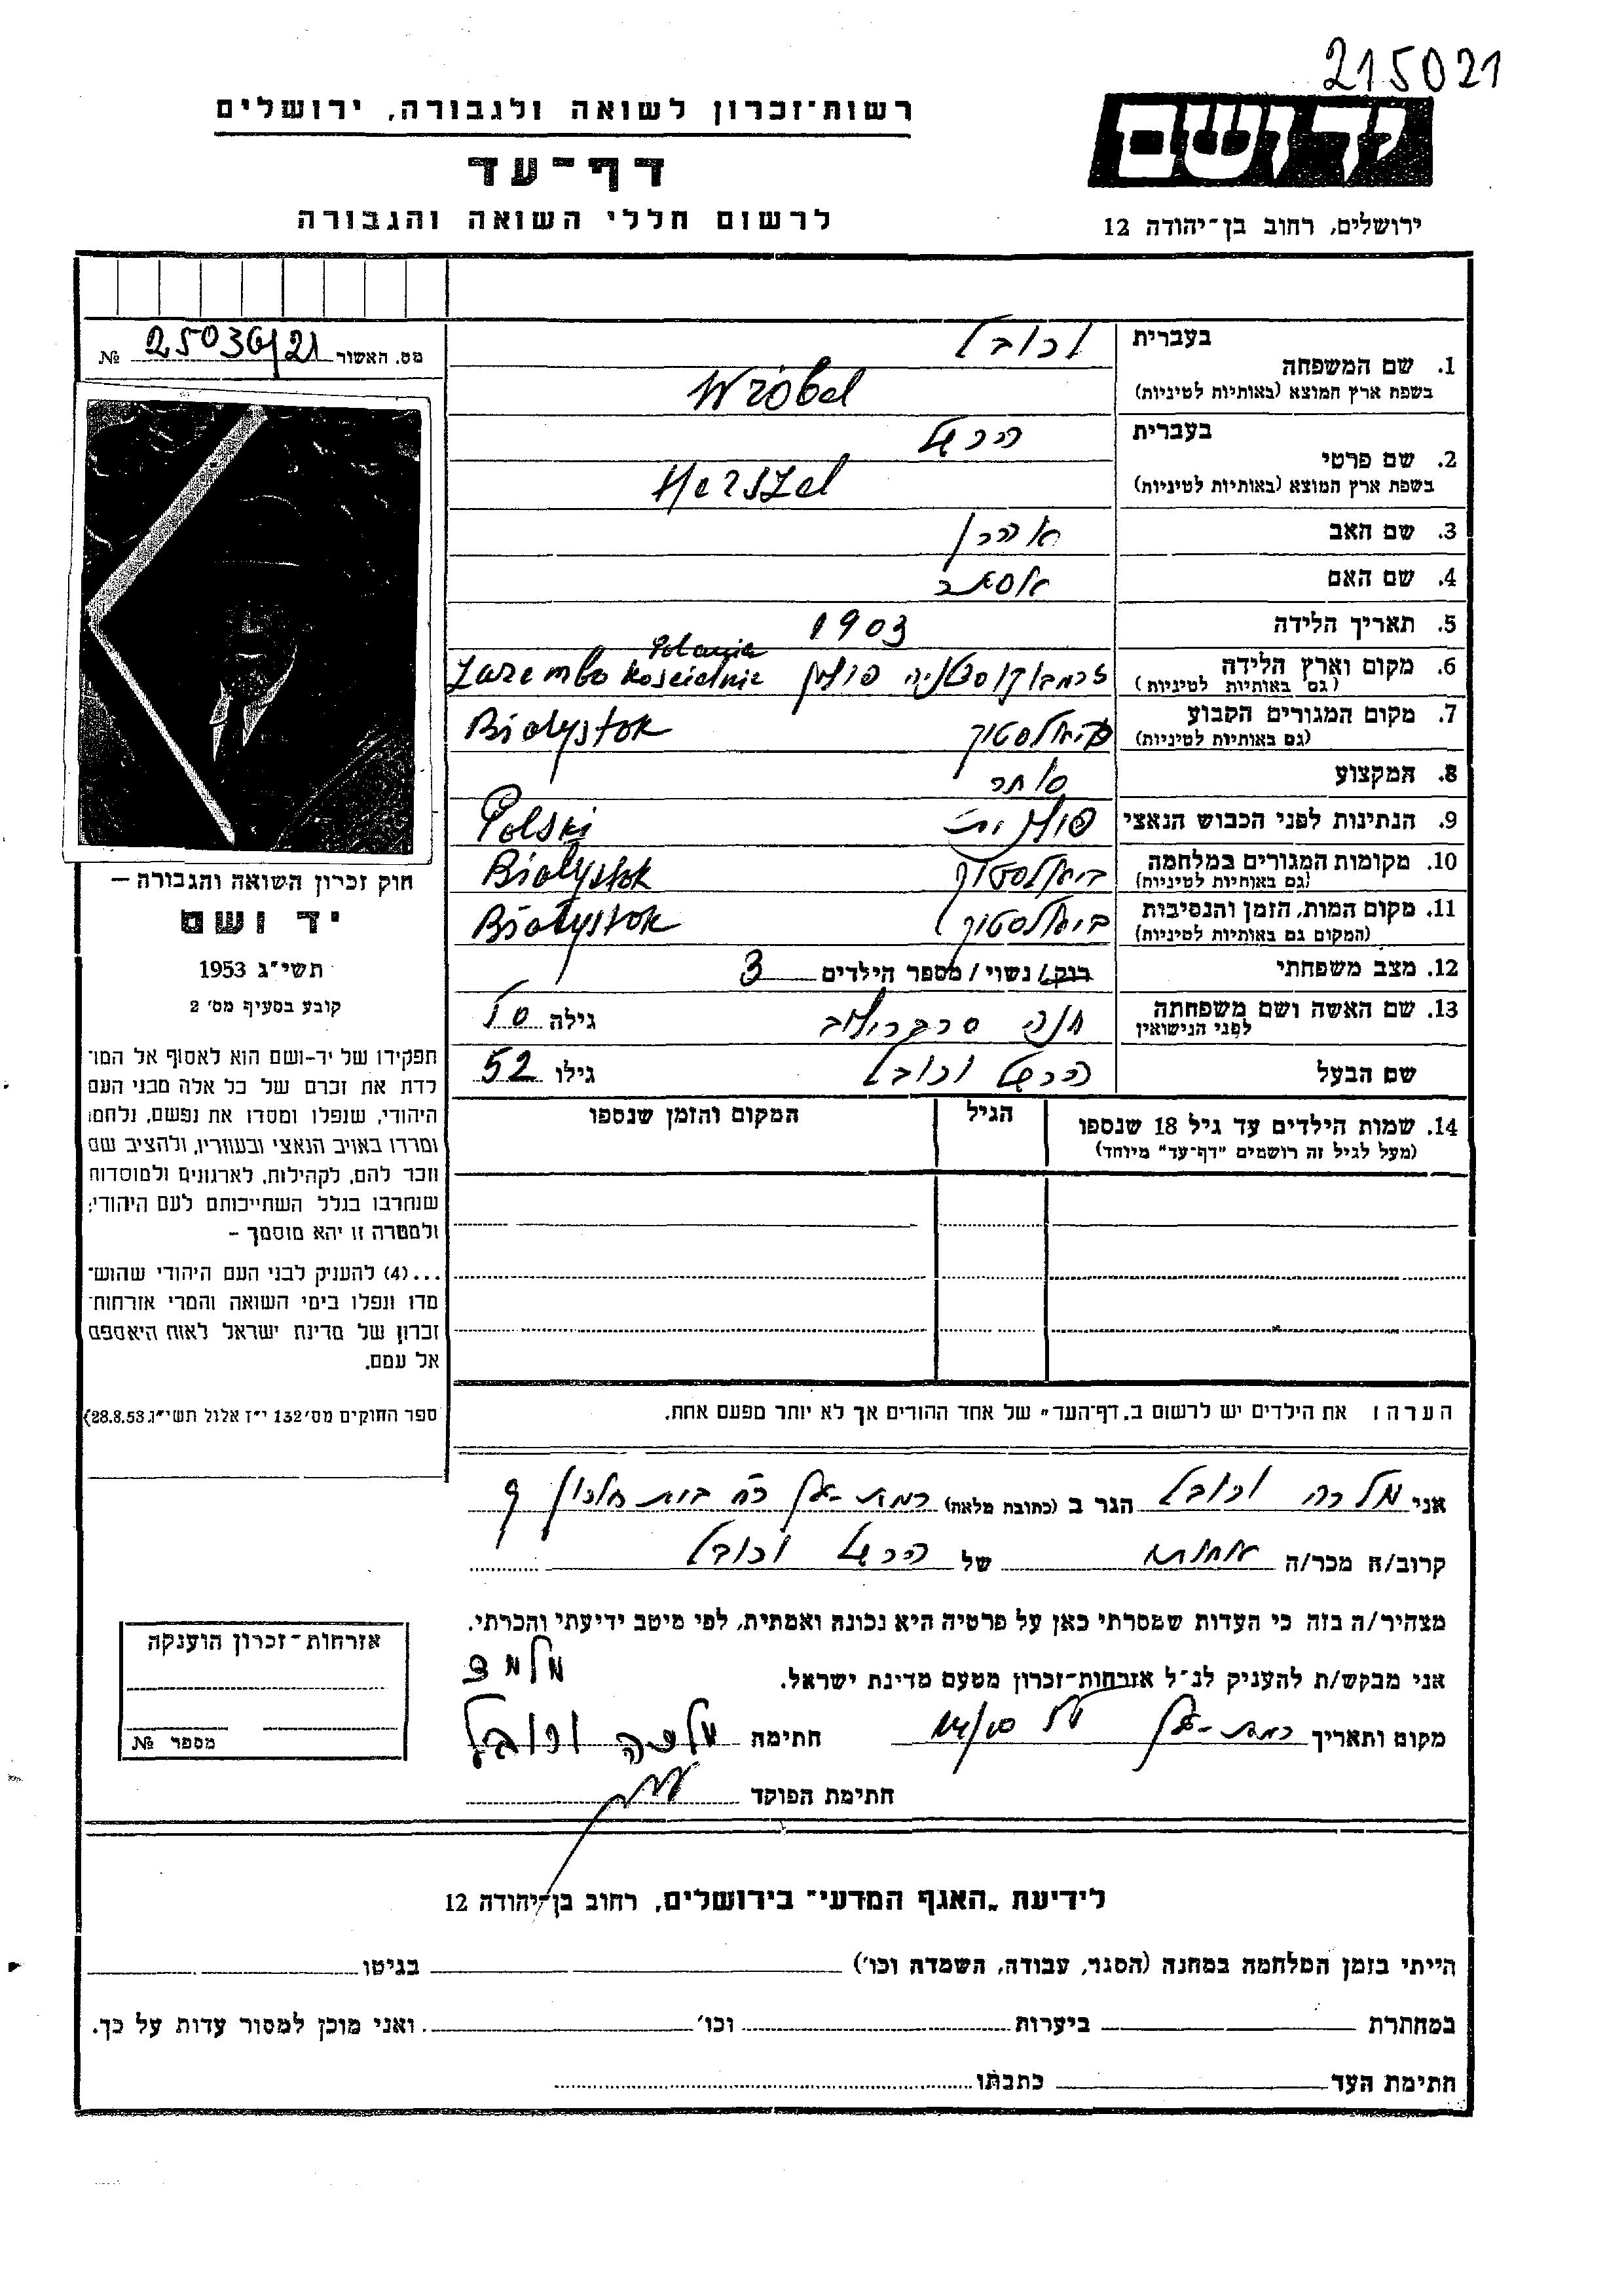 215021
יד ושם
ירושלים, רחוב בן-יהודה 12
רשות-זכרון לשואה ולגבורה, ירושלים
דף-עד
לרשום חללי השואה והגבורה
מס. האשור 25036/21 №
בעברית
1. שם המשפחה ורובל
בשפת ארץ המוצא (באותיות לטיניות) Wróbel
בעברית
2. שם פרטי הרשל
בשפת ארץ המוצא (באותיות לטיניות) Herszel
3. שם האב אהרן
4. שם האם אסתר
5. תאריך הלידה 1903
6. מקום וארץ הלידה פולין Polania
(גם באותיות לטיניות) Zarembo Koscielnie
7. מקום המגורים הקבוע ביאליסטוק Bialystok
(גם באותיות לטיניות)
8. המקצוע סוחר
9. הנתינות לפני הכבוש הנאצי פולנית Polski
10. מקומות המגורים במלחמה ביאליסטוק Białystok
(גם באותיות לטיניות)
11. מקום המות, הזמן והנסיבות ביאליסטוק Białystok
(המקום גם באותיות לטיניות)
12. מצב משפחתי רוק/ נשוי / מספר הילדים 3
13. שם האשה ושם משפחתה חנה גילה
לפני הנישואין
שם הבעל הרשל ורובל גילו 52
14. שמות הילדים עד גיל 18 שנספו הגיל המקום והזמן שנספו
(מעל לגיל זה רושמים "דף-עד" מיוחד)
חוק זכרון השואה והגבורה —
יד ושם
תשי"ג 1953
קובע בסעיף מס' 2
תפקידו של יד-ושם הוא לאסוף אל המו־
לדת את זכרם של כל אלה מבני העם
היהודי, שנפלו ומסרו את נפשם, נלחמו
ומרדו באויב הנאצי ובעוזריו, ולהציב שם
וזכר להם, לקהילות, לארגונים ולמוסדות
שנחרבו בגלל השתייכותם לעם היהודי;
ולמטרה זו יהא מוסמך –
...(4) להעניק לבני העם היהודי שהוש־
מדו ונפלו בימי השואה והמרי אזרחות־
זכרון של מדינת ישראל לאות היאספם
אל עמם.
ספר החוקים מס' 132 י"ז אלול תשי"ג 28.8.53)
הערה: את הילדים יש לרשום ב"דף-העד" של אחד ההורים אך לא יותר מפעם אחת.
אני מלכה ורובל הגר ב (כתובת מלאה) רמת-גן רח
קרוב/ה מכר/ה של הרשל ורובל
מצהיר/ה בזה כי העדות שמסרתי כאן על פרטיה היא נכונה ואמתית, לפי מיטב ידיעתי והכרתי.
אני מבקש/ת להעניק לנ"ל אזרחות-זכרון מטעם מדינת ישראל.
מקום ותאריך רמת-גן חתימה מלכה ורובל
חתימת הפוקד
אזרחות-זכרון הוענקה
מספר №
לידיעת "האגף המדעי" בירושלים, רחוב בן-יהודה 12
הייתי בזמן המלחמה במחנה (הסגר, עבודה, השמדה וכו') בגיטו
במחתרת ביערות וכו' ואני מוכן למסור עדות על כך.
חתימת העד כתבתו